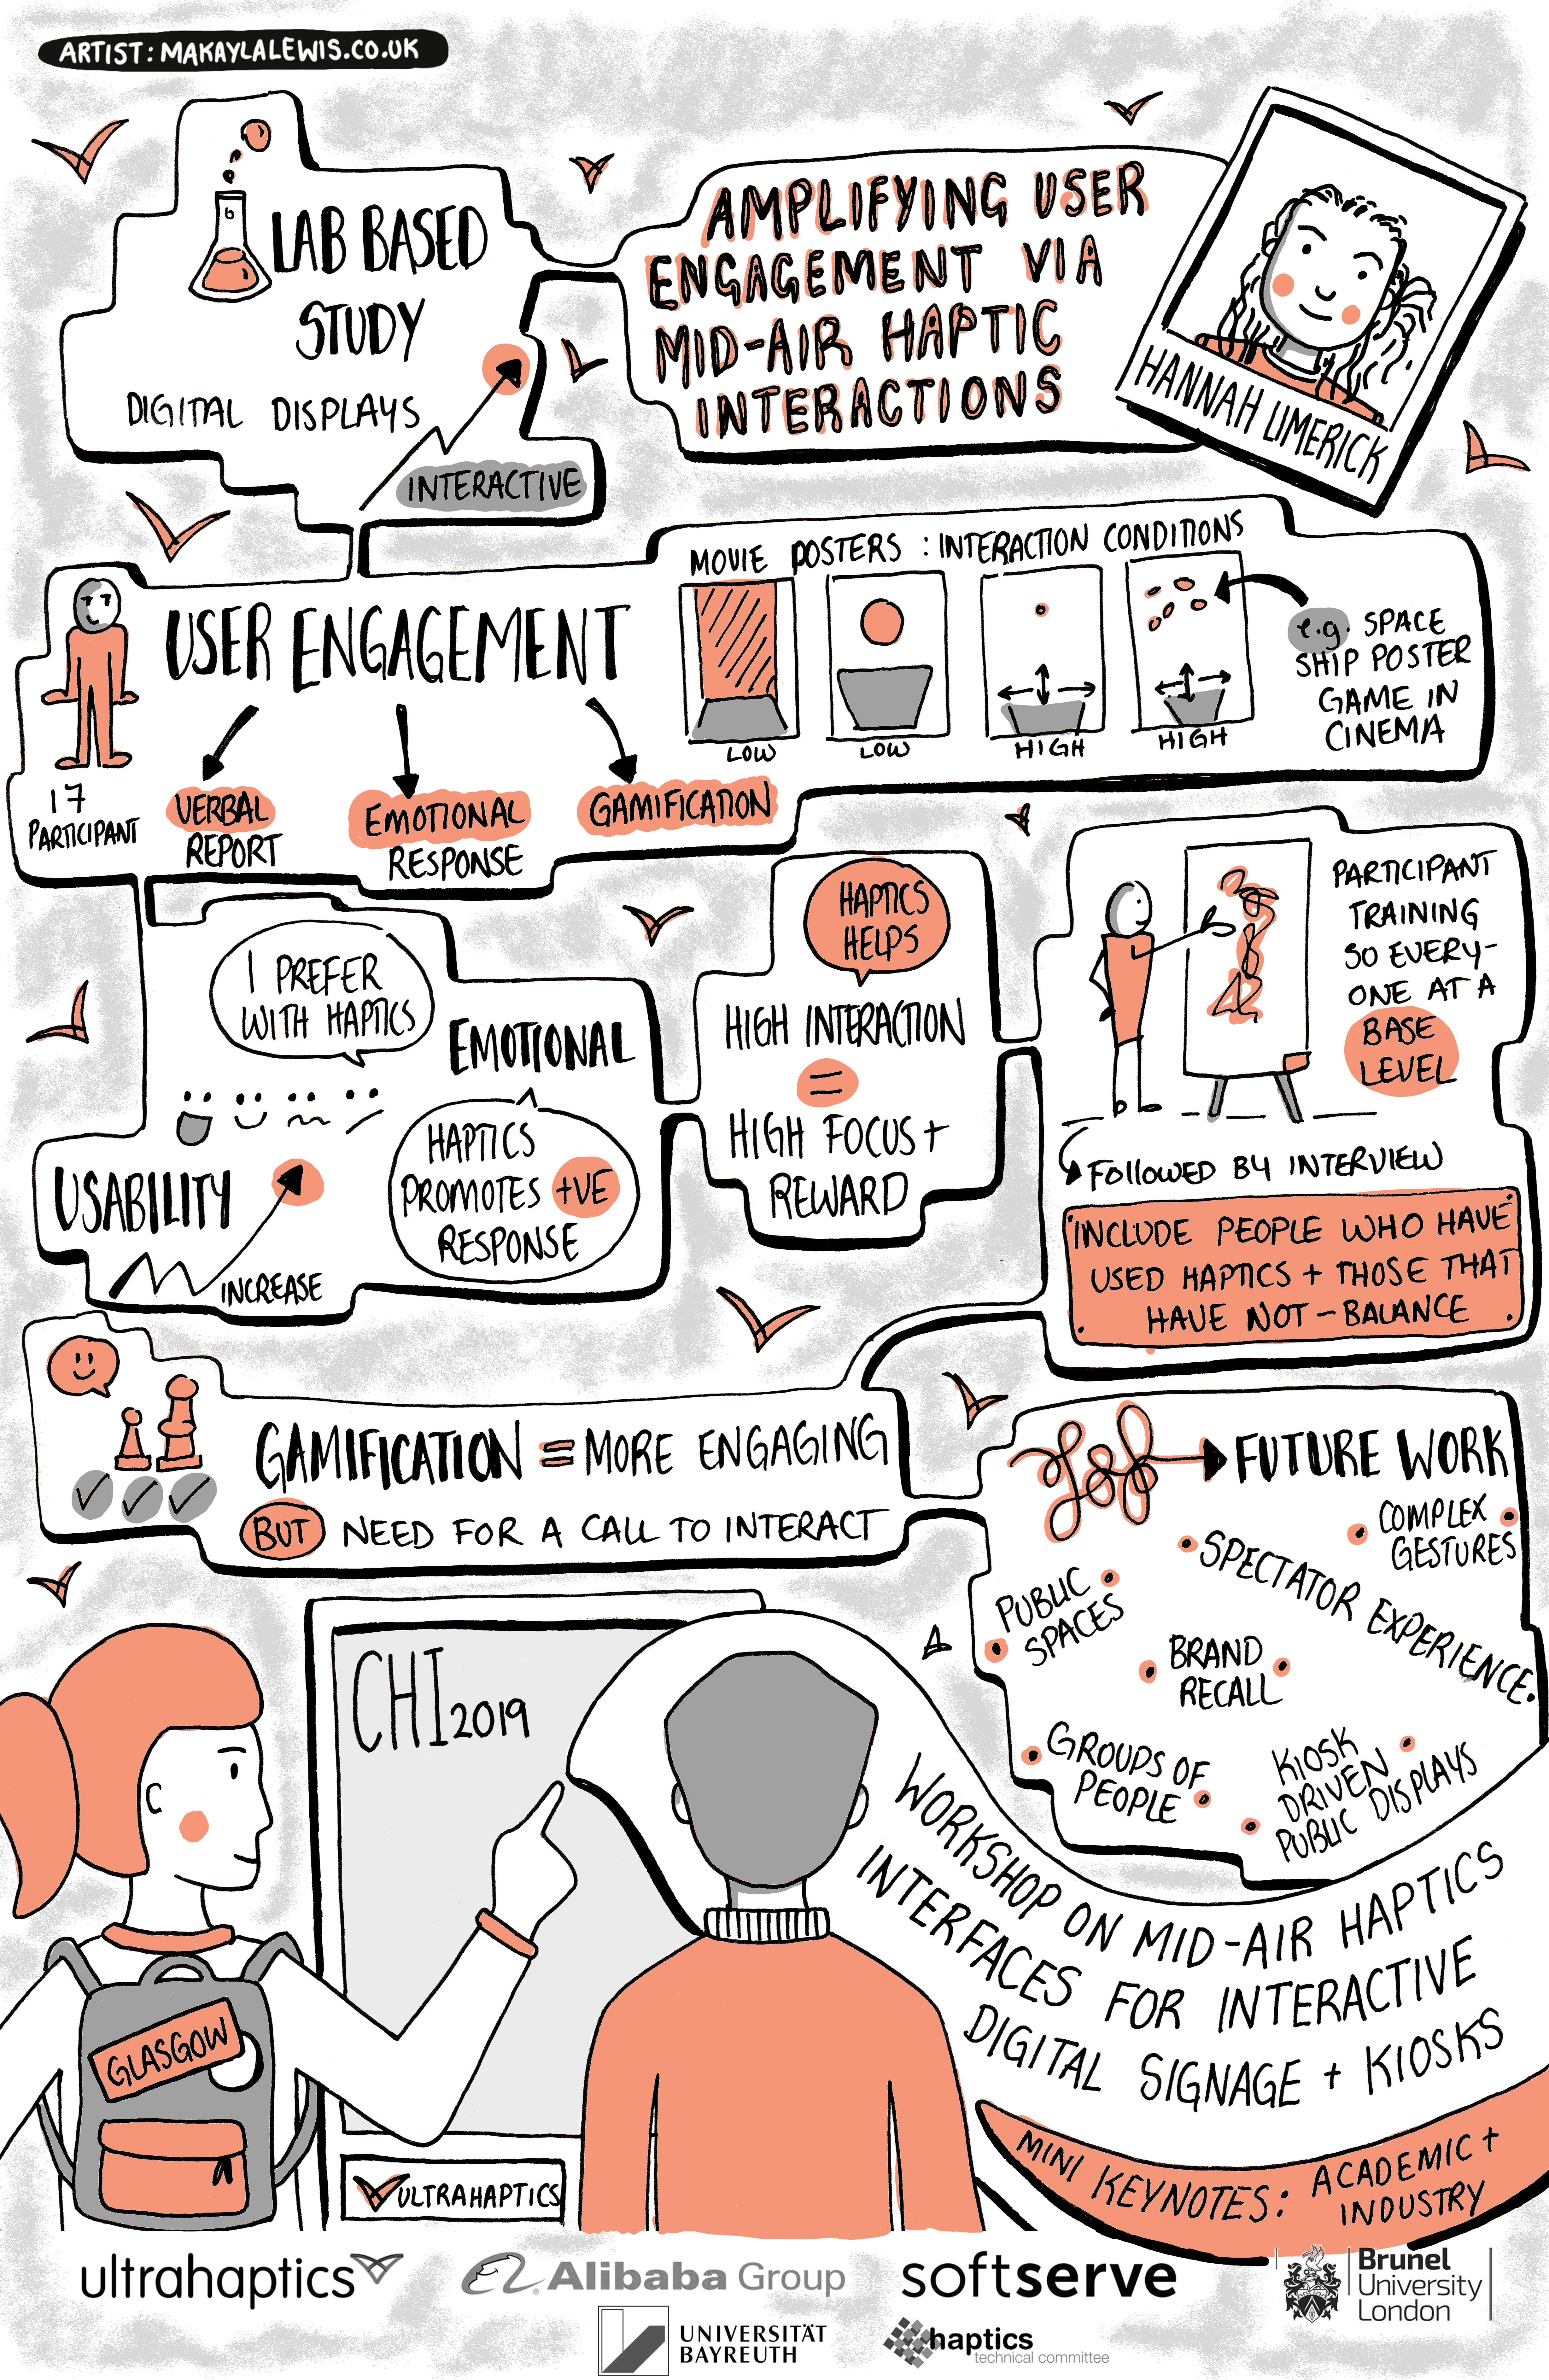 ARTIST: MAKAYLALEWIS.CO.UK
LAB BASED
STUDY
DIGITAL DISPLAYS
INTERACTIVE
AMPLIFYING USER
ENGAGEMENT VIA
MID-AIR HAPTIC
INTERACTIONS
HANNAH LIMERICK
17
PARTICIPANT
USER ENGAGEMENT
VERBAL
REPORT
EMOTIONAL
RESPONSE
GAMIFICATION
MOVIE POSTERS : INTERACTION CONDITIONS
LOW
LOW
HIGH
HIGH
e.g. SPACE
SHIP POSTER
GAME IN
CINEMA
I PREFER
WITH HAPTICS
EMOTIONAL
HAPTICS
PROMOTES +VE
RESPONSE
USABILITY
INCREASE
HAPTICS
HELPS
HIGH INTERACTION
=
HIGH FOCUS +
REWARD
PARTICIPANT
TRAINING
SO EVERY-
ONE AT A
BASE
LEVEL
FOLLOWED BY INTERVIEW
INCLUDE PEOPLE WHO HAVE
USED HAPTICS + THOSE THAT
HAVE NOT - BALANCE
GAMIFICATION = MORE ENGAGING
BUT NEED FOR A CALL TO INTERACT
FUTURE WORK
COMPLEX
GESTURES
SPECTATOR EXPERIENCE
PUBLIC
SPACES
BRAND
RECALL
GROUPS OF
PEOPLE
KIOSK
DRIVEN
PUBLIC DISPLAYS
CHI 2019
GLASGOW
ULTRAHAPTICS
WORKSHOP ON MID-AIR HAPTICS
INTERFACES FOR INTERACTIVE
DIGITAL SIGNAGE + KIOSKS
MINI KEYNOTES: ACADEMIC +
INDUSTRY
ultrahaptics
Alibaba Group
softserve
Brunel
University
London
UNIVERSITÄT
BAYREUTH
haptics
technical committee